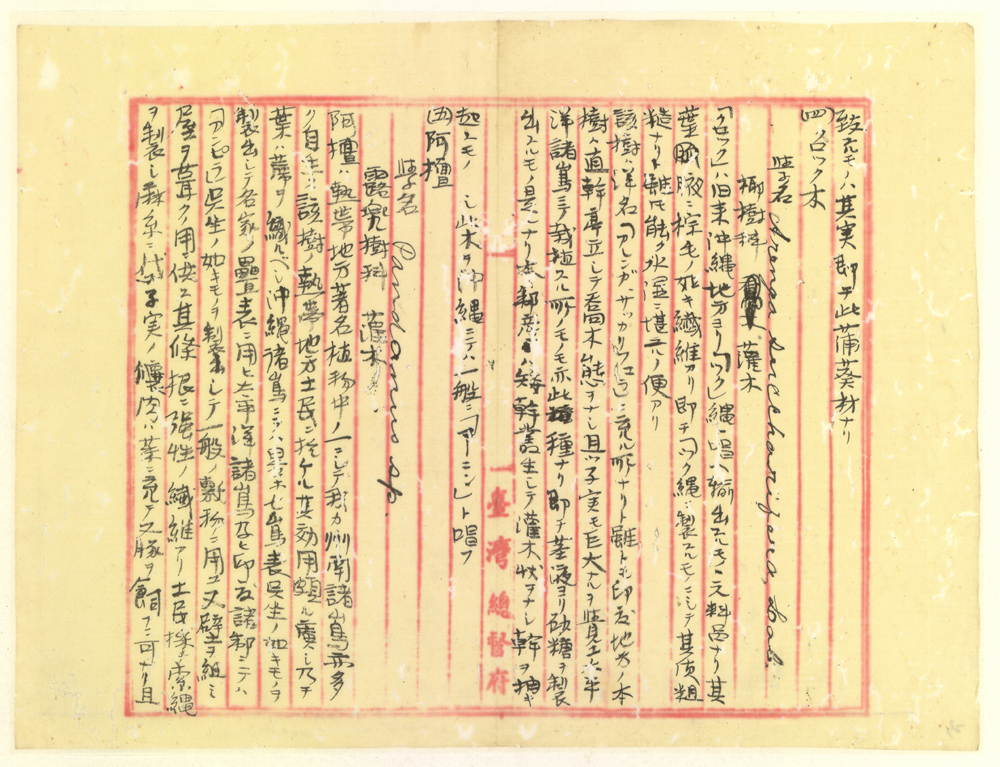 致スモノハ其実即チ此蒲葵材ナリ
(四)「クロツク」木
学名 Arenga saccharifera, Labil.
椰樹科 灌木
「クロツク」ハ旧来沖縄地方ヨリ「ツク」縄ト唱ヘ輸出スルモノヽ元料品ナリ其
葉脈腋ニ棕毛ノ如キ繊維アリ即チ「ツク」縄ニ製スルモノニシテ其質粗
糙ナリト雖モ能ク水湿ニ堪ユルノ便アリ
該樹ハ洋名「アレンガ、サツカリフエラ」ニ充ル所ナリト雖トモ印度地方ノ本
樹ハ直幹亭立シテ喬木ノ態ヲナシ且ツ子実モ巨大ナルヲ覚ユ太平
洋諸島ニテ栽植スル所ノモノモ亦此種ナリ即チ茎液ヨリ砂糖ヲ製
出スルモノ是ナリ本邦産ハ矮幹叢生シテ灌木状ヲナシ幹ヲ抽キ
起スモノ シ此木ヲ沖縄ニテハ一般ニ「マーニン」ト唱フ
(五)阿檀
学名 Pandanus sp.
露兜樹科 灌木
阿檀ハ熱帯地方著名植物中ノ一ニシテ我カ州南諸島亦多
ク自生ス該樹ノ熱帯地方土民ニ於ケル其効用頗ル廣シ乃チ
葉ハ蓆ヲ織ルベシ沖縄諸島ニテハ七島表呉座ノ如キモノヲ
製出シテ名家ノ畳表ニ用ヒ太平洋諸島及ヒ印度諸部ニテハ
「アンピラ」呉座ノ如キモノヲ製出シテ一般ノ敷物ニ用ユ又壁ヲ組ミ
屋ヲ葺クノ用ニ供ス其條根ニ強性ノ繊維アリ土民採テ索縄
ヲ製シ麻糸ニ代ユ子実ノ肉ハ菜ニ充テ又豚ヲ飼フニ可ナリ且
臺灣總督府